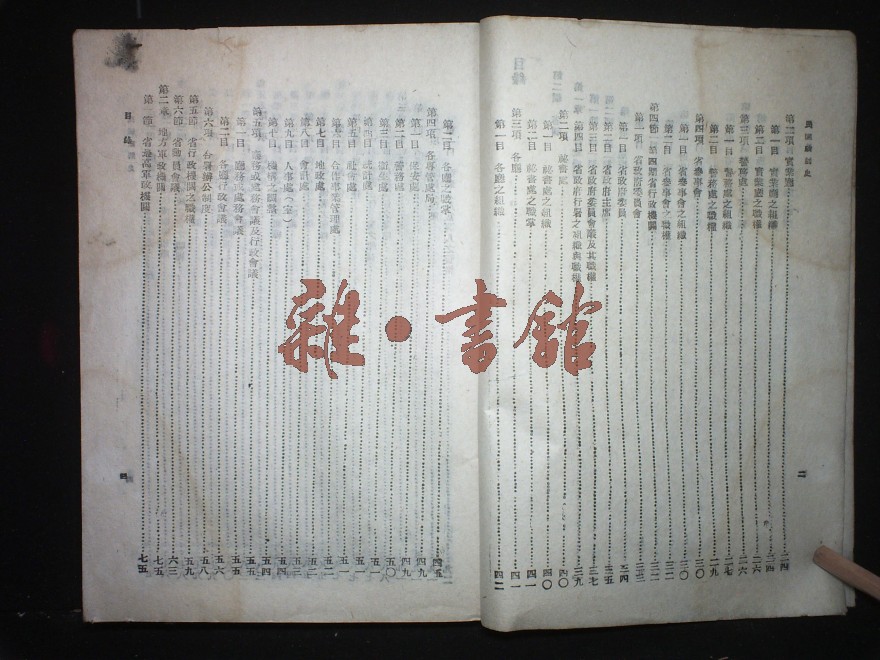 第二項 實業廳…二四
第一目 實業廳之組織…二四
第二目 實業廳之職權…二六
第三項 警務處…二六
第一目 警務處之組織…二七
第二目 警務處之職權…二九
第四項 省參事會…三〇
第一目 省參事會之組織…三〇
第二目 省參事會之職權…三二
第四節 第四期省行政機關…三二
第一項 省政府委員會…三三
第一目 省政府委員…三四
第二目 省政府主席…三五
第三目 省政府委員會議及其職權…三七
第四目 省政府行署之組織與職權…三九
第二項 祕書處…四〇
第一目 祕書處之組織…四〇
第二目 祕書處之職掌…四一
第三項 各廳…四一
第一目 各廳之組織…四二
二
第二目 各廳之職掌…四五
第四項 各專管處局…四九
第一目 保安處…四九
第二目 警務處…五〇
第三目 衞生處…五一
第四目 統計處…五一
第五目 社會處…五一
第六目 合作事業管理處…五二
第七目 地政處…五二
第八目 會計處…五三
第九目 人事處(室)…五四
第十目 機構之調整…五四
第五項 廳務或處務會議及行政會議…五五
第一目 廳務或處務會議…五五
第二目 各廳行政會議…五六
第六項 合署辦公制度…五八
第五節 省行政機關之職權…五九
第六節 省動員會議…六三
第二章 地方軍政機關…七五
第一節 省最高軍政機關…七五
目錄
雜·書館